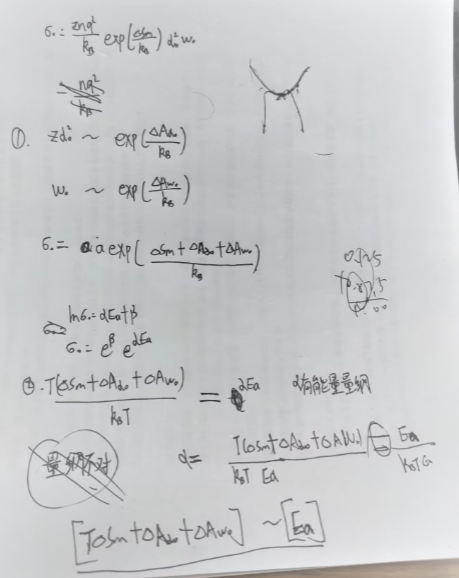 σ₀ = znq²/k_B exp(ΔSm/k_B) d₀² w₀
= nq²/k_B
①. zd₀² ~ exp(ΔAd₀/k_B)
w₀ ~ exp(ΔAw₀/k_B)
σ₀ = a exp(ΔSm+ΔAd₀+ΔAw₀/k_B)
lnσ₀ = αEa+β
σ₀ = e^β e^αEa
②. T(ΔSm+ΔAd₀+ΔAw₀)/k_BT = αEa α有能量量纲
量纲不对
α = T(ΔSm+ΔAd₀+ΔAw₀)/k_BT Ea = Ea/k_BT
[TΔSm+ΔAd₀+ΔAw₀] ~ [Ea]